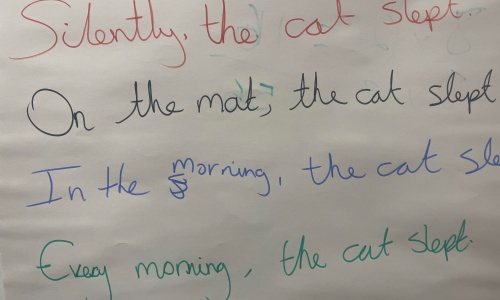 Silently, the cat slept.
On the mat, the cat slept
In the morning, the cat sle
Every morning, the cat slept.